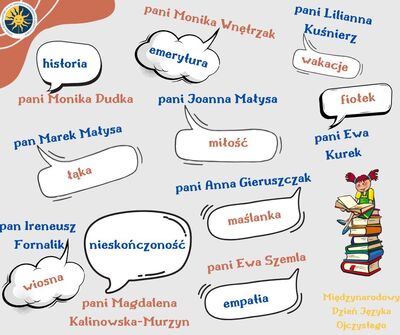 pani Monika Wnętrzak
pani Lilianna
Kuśnierz
historia
emerytura
wakacje
pani Monika Dudka
pani Joanna Małysa
fiołek
pan Marek Małysa
miłość
pani Ewa
Kurek
łąka
pani Anna Gieruszczak
maślanka
pan Ireneusz
Fornalik
nieskończoność
wiosna
pani Ewa Szemla
empatia
pani Magdalena
Kalinowska-Murzyn
Międzynarodowy
Dzień Języka
Ojczystego